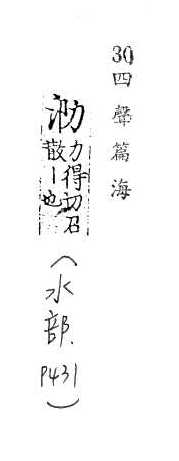 30四聲篇海
泐
力得切石
散丨也
(水部.
P431)